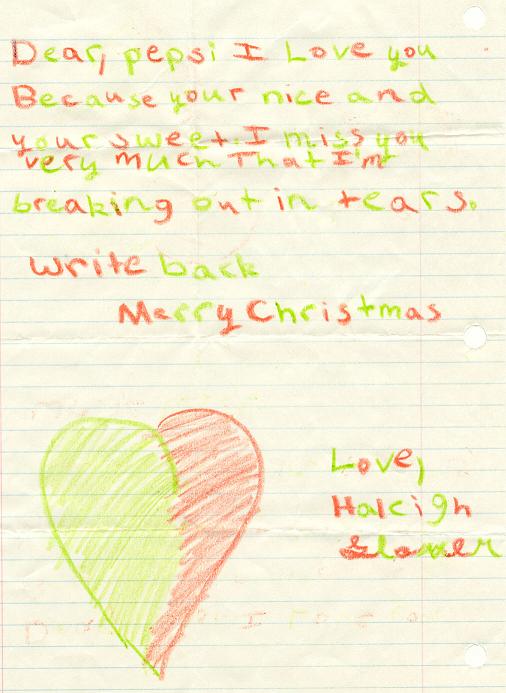 Dear, pepsi I Love you
Because your nice and
your sweet. I miss you
very much That I'm
breaking out in tears.
write back
Merry Christmas
Love,
Haleigh